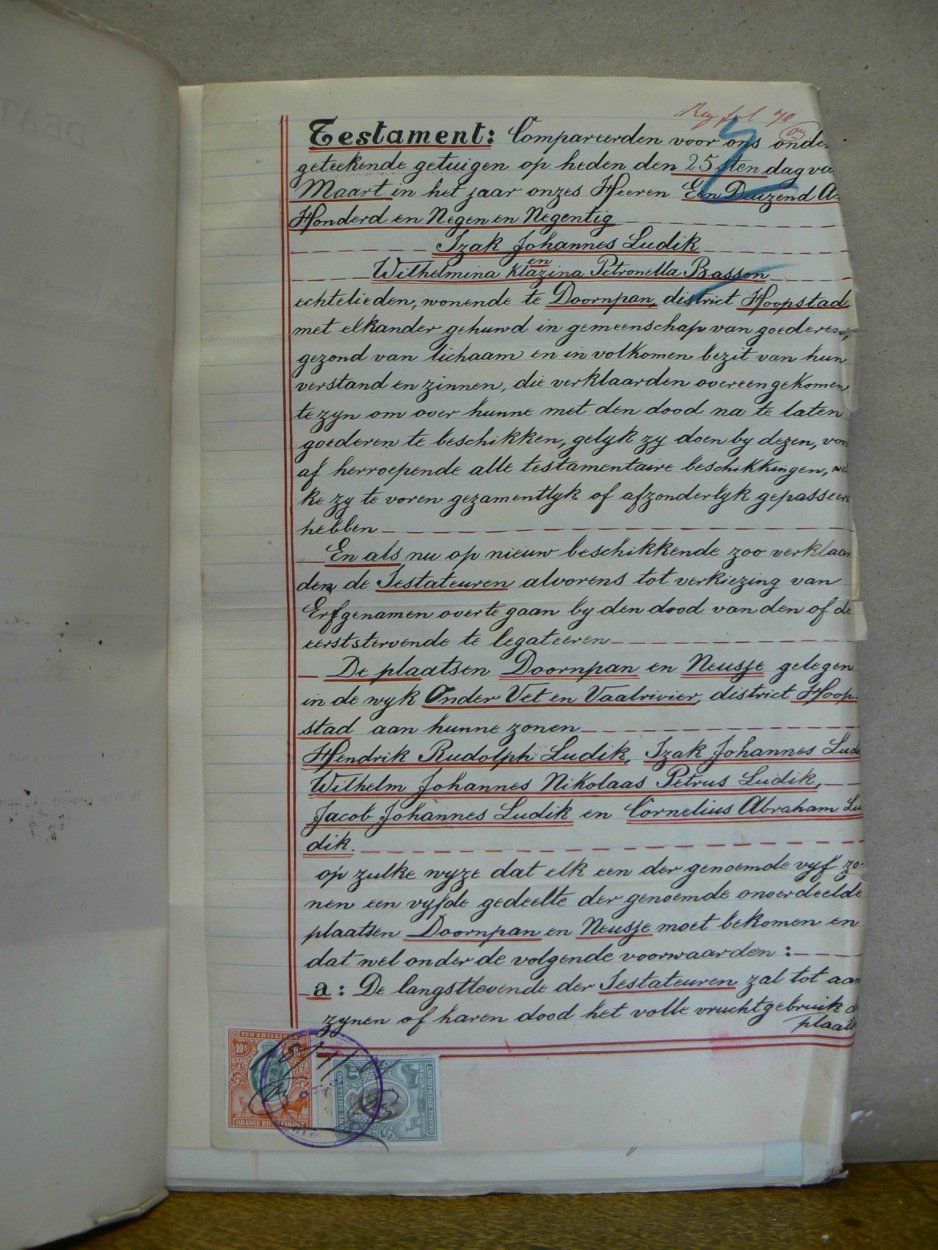 Testament: Compareerden voor ons onder
geteekende getuigen op heden den 25sten dag va
Maart in het jaar onzes Heeren Een Duizend A
Honderd en Negen en Negentig
Izak Johannes Ludik
en
Wilhelmina Klazina Petronella Basson
echtelieden, wonende te Doornpan, district Hoopstad
met elkander gehuwd in gemeenschap van goederen,
gezond van lichaam en in volkomen bezit van hun
verstand en zinnen, die verklaarden overeengekomen
te zyn om over hunne met den dood na te laten
goederen te beschikken, gelyk zy doen by dezen, voo
af herroepende alle testamentaire beschikkingen, we
ke zy te voren gezamentlyk of afzonderlyk gepasseer
hebben
En als nu op nieuw beschikkende zoo verklaar
den de Testateuren alvorens tot verkiezing van
Erfgenamen over te gaan by den dood van den of de
eerststervende te legateeren
De plaatsen Doornpan en Neusje gelegen
in de wyk Onder Vet en Vaalrivier, district Hoop
stad aan hunne zonen
Hendrik Rudolph Ludik, Izak Johannes Lud
Wilhelm Johannes Nikolaas Petrus Ludik,
Jacob Johannes Ludik en Cornelius Abraham Lu
dik.
op zulke wyze dat elk een der genoemde vyf zo-
nen een vyfde gedeelte der genoemde onverdeelde
plaatsen Doornpan en Neusje moet bekomen en
dat wel onder de volgende voorwaarden:
a: De langstlevende der Testateuren zal tot aan
zynen of haren dood het volle vruchtgebruik d
plaats
TEN SHILLINGS
10s
ORANGE RIVER COLONY